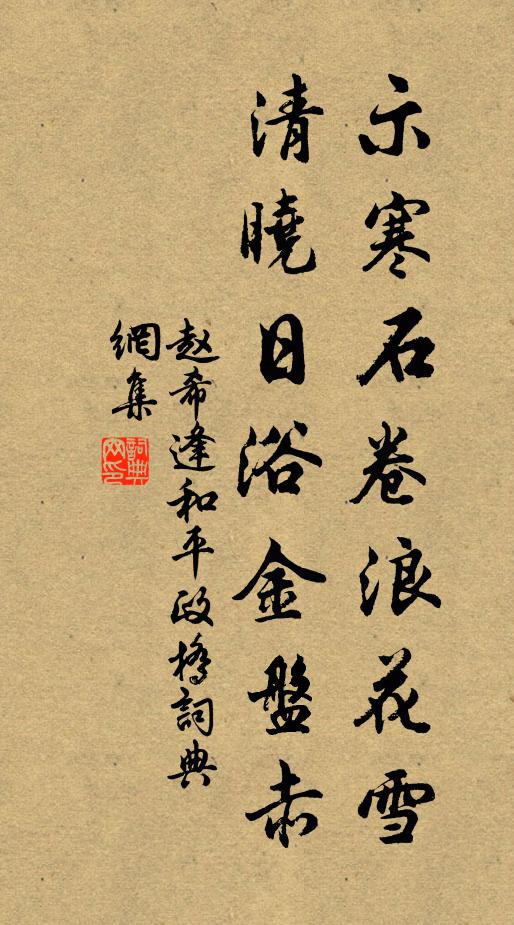 示寒石卷浪花雪
清曉日浴金盤赤
赵希逢和平政橋詞典
網集
詞典
网印